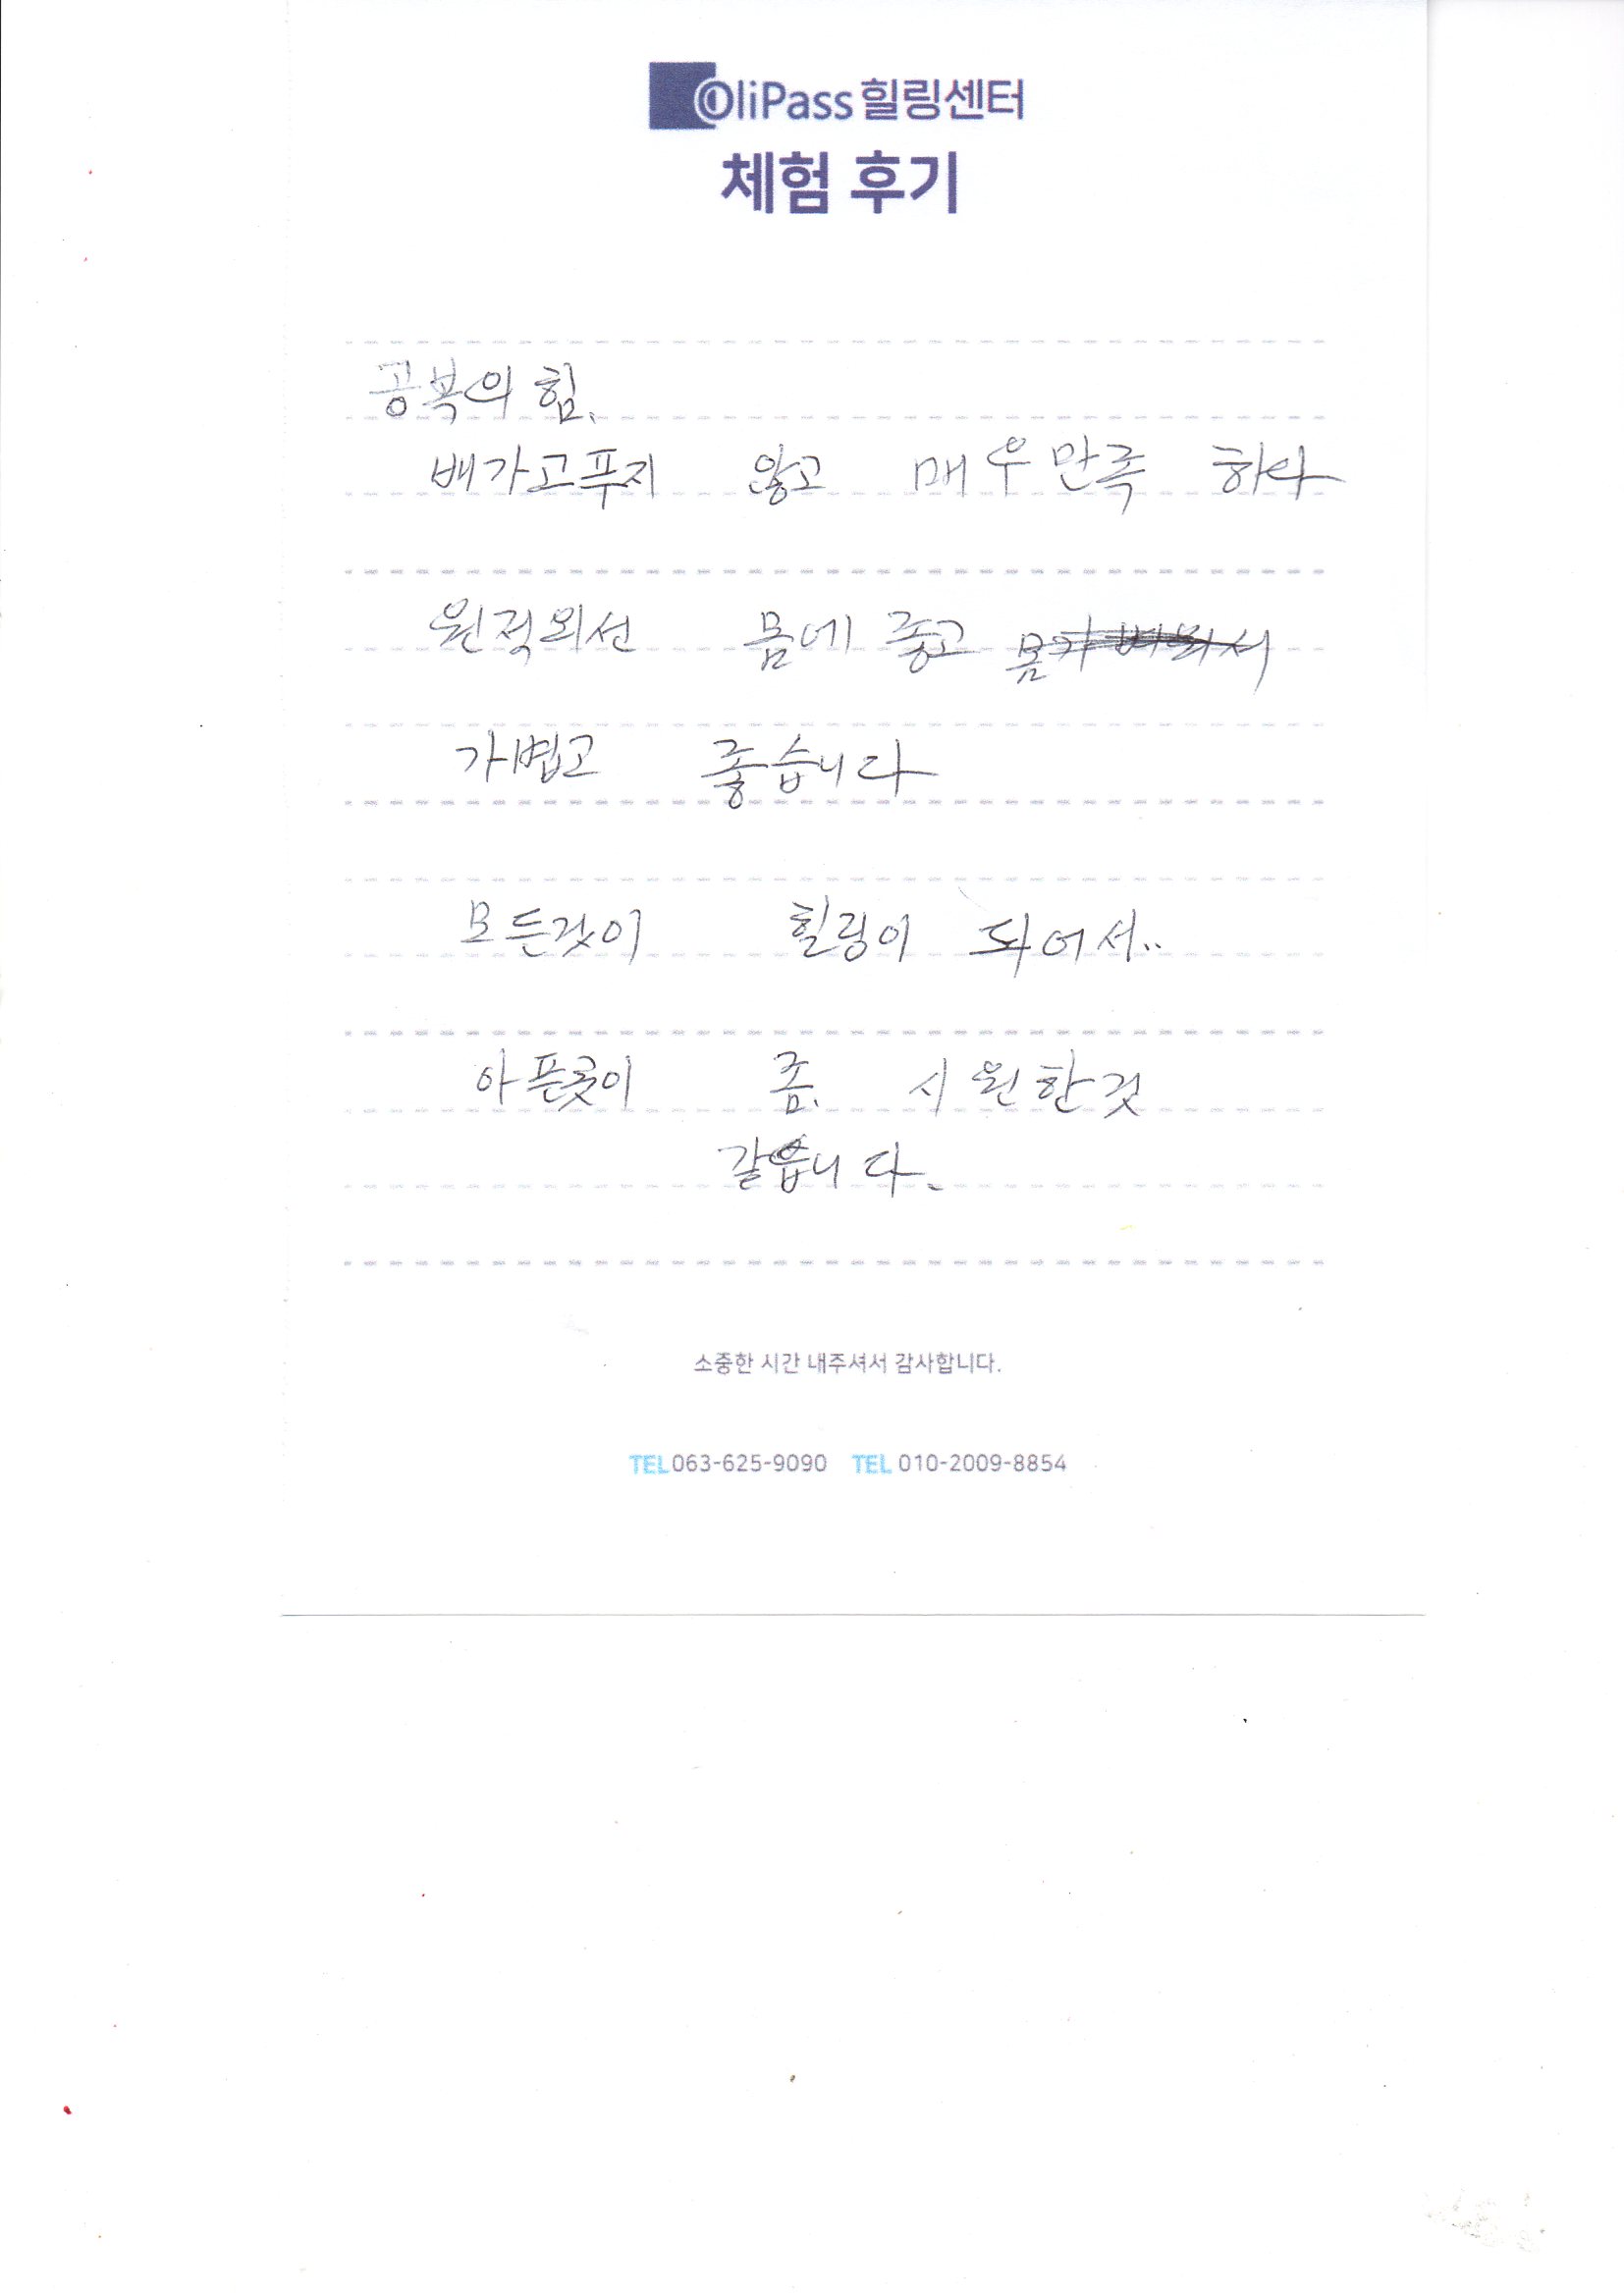 OliPass 힐링센터
체험 후기
공복의 힘.
배가고푸지 않고 매우만족 하다
원적외선 몸에 좋고 몸
가볍고 좋습니다
모든것이 힐링이 되어서..
아픈곳이 좀. 시원한것
같읍니다.
소중한 시간 내주셔서 감사합니다.
TEL 063-625-9090 TEL 010-2009-8854